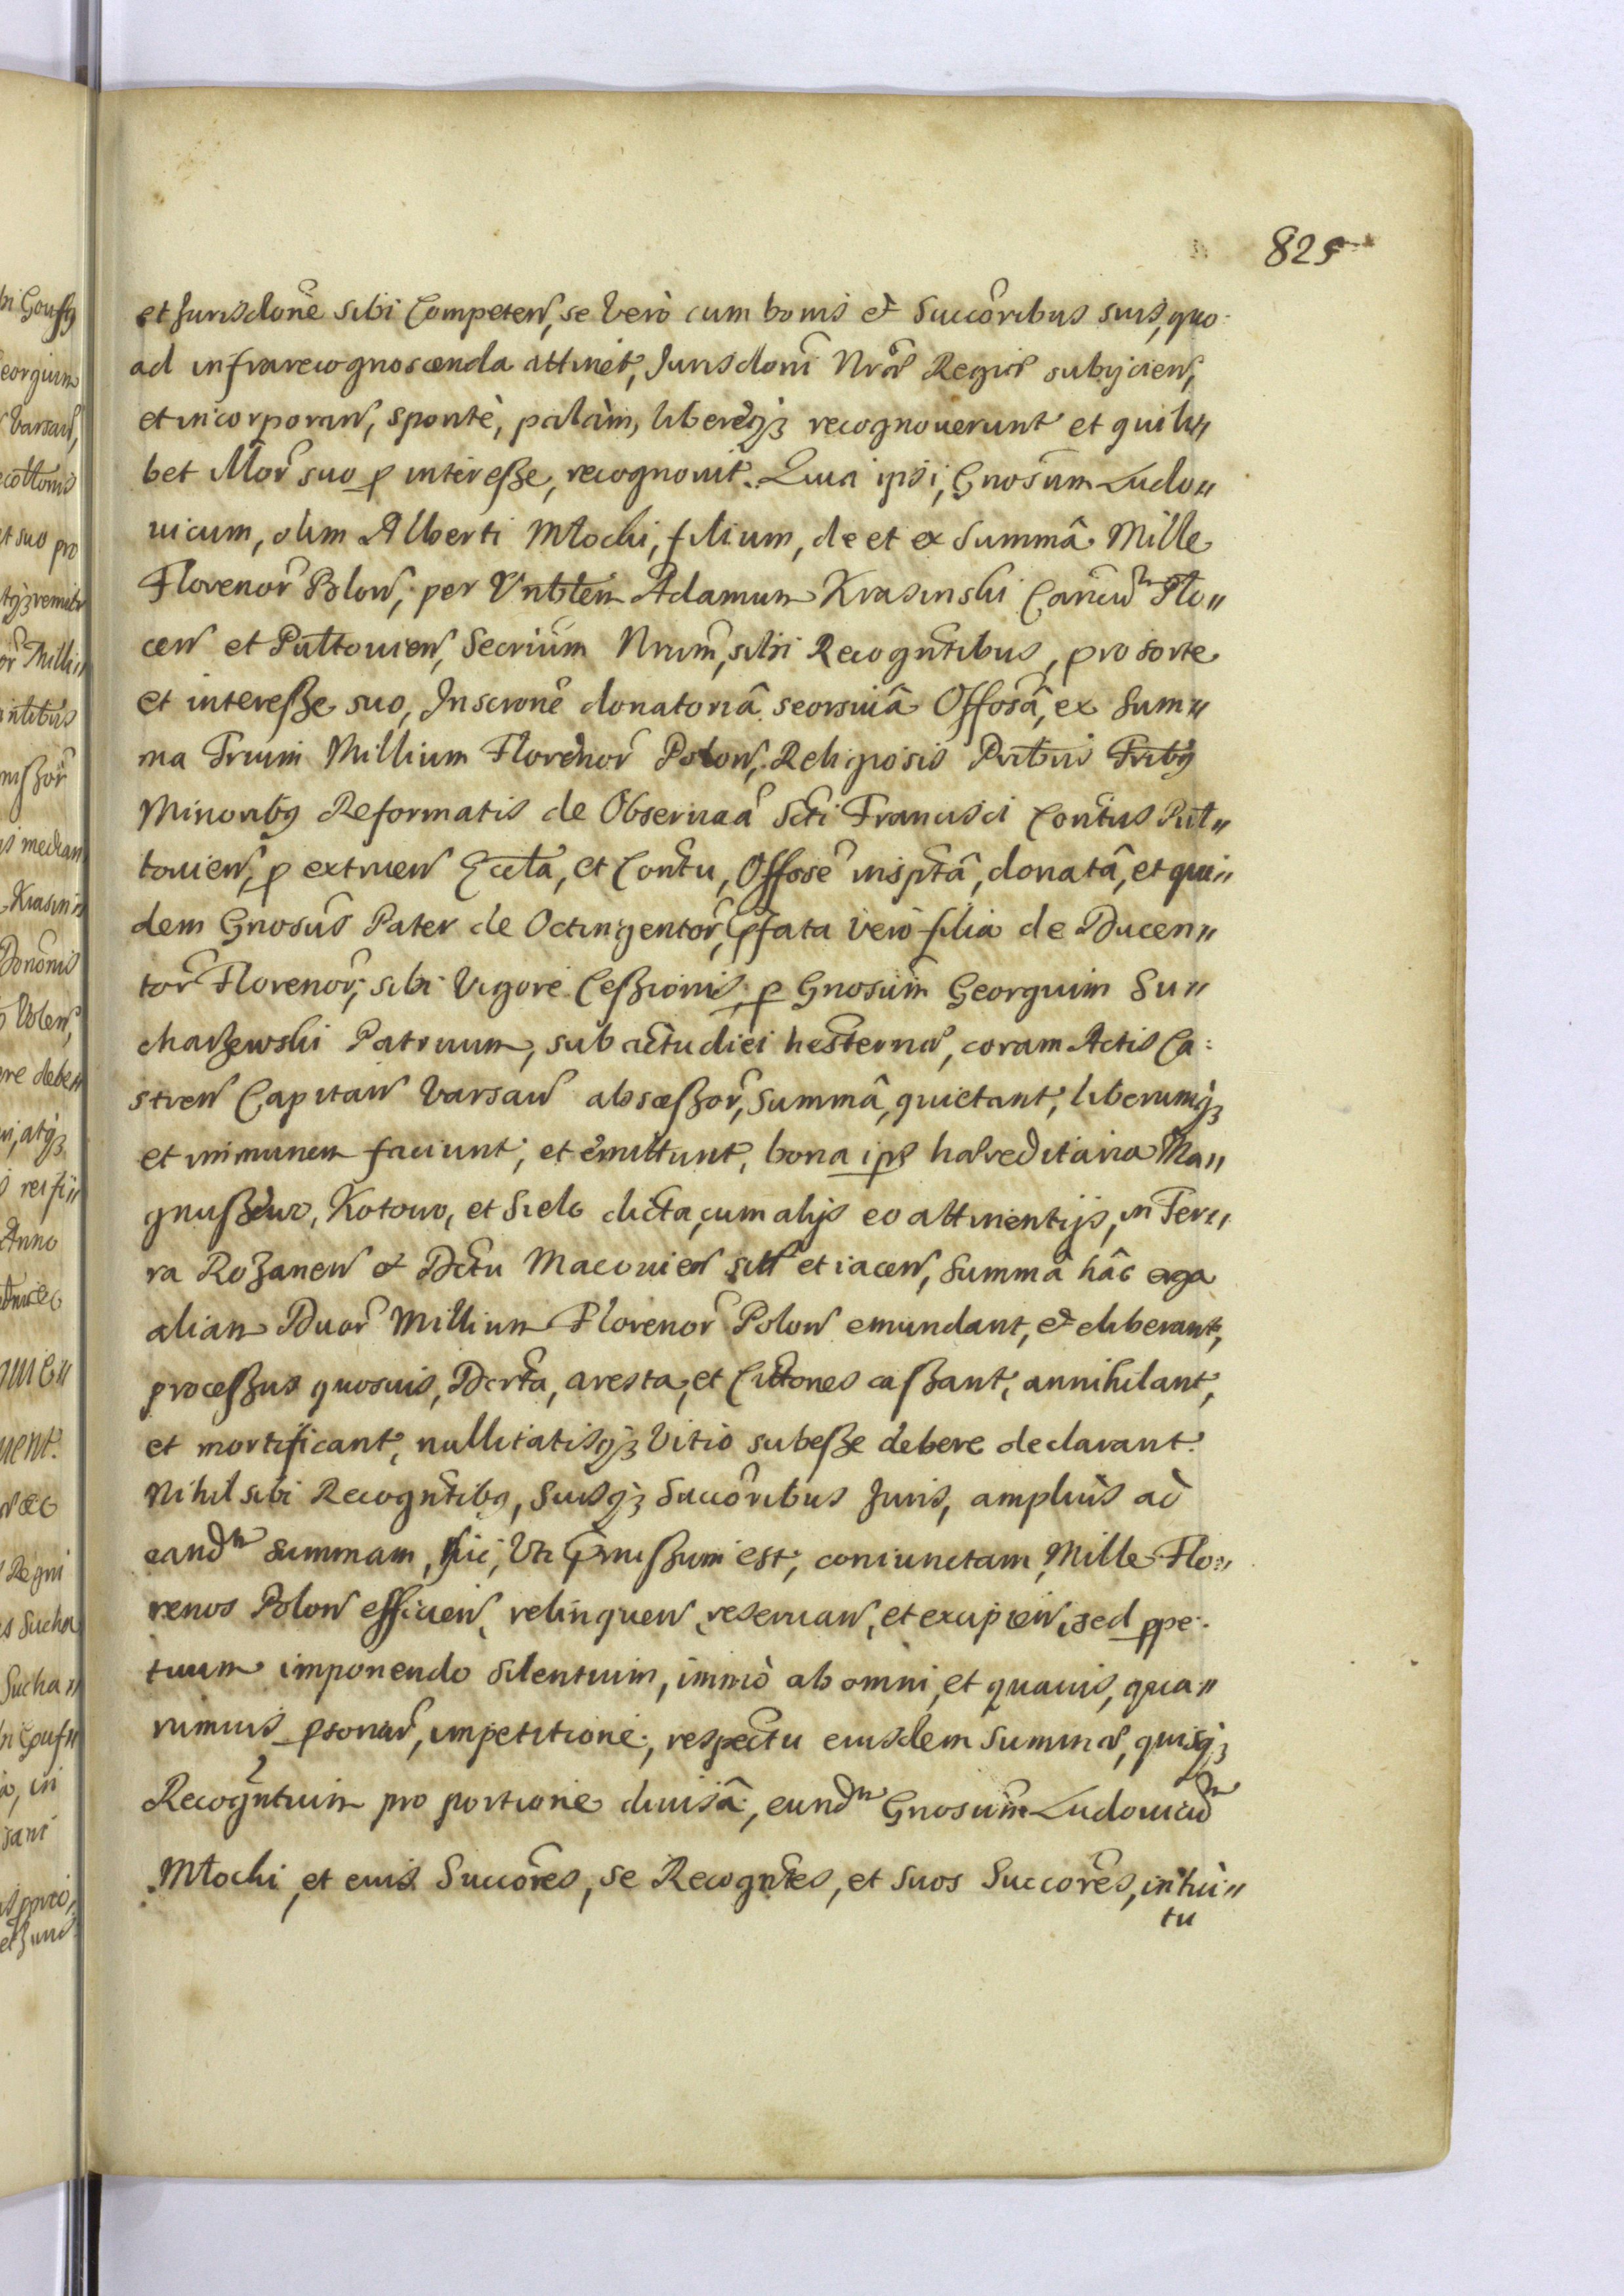 825
et Jurisdone sibi Competen, se vero cum bonis et Succoribus suis, quo
ad infrarecognoscenda attinet, Jurisdoni Nrae Regiae subijcien,
et incorporan, spontè, palàm, liberèq3 recognouerunt et quili„
bet Mor suo p interesße, recognouit. Quia ipsi, Gnosum Ludo„
uicum, olim Alberti Młocki, filium, de et ex Summâ Mille
Florenor Polon, per Vnblem Adamum Krasinski Cancum Plo„
cen et Pultouien, Secrium Nrum, sibi Recogntibus, pro sorte
et interesße suo, Inscrone donatoriâ seorsiuâ Offosâ, ex Sum„
ma Trium Millium Florenor Polon, Religiosis Pribus Fribq
Minoribq Reformatis de Obseruaa Scti Francisci Contus Pul„
touien, p extruen Eccla, et Contu, Offose insptâ, donatâ, et qui„
dem Gnosus Pater de Octingentor, Pfata vero filia de Ducen„
tor Florenor, sibi Vigore Cesßionis p Gnosum Georgium Su„
chaβewski Patruum, sub actu diei hesternae, coram Actis Ca:
stren Capitan Varsau absceßor, Summâ, quietant, liberumq3
et immunem faciunt, et emittunt, bona ips haereditaria Ma„
gnusßewo, Kotowo, et Sielc dicta, cum alijs eo attinentijs, in Ter„
ra Rozanen et Dctu Macouien sit et iacen, Summâ hâc erga
aliam Duor Millium Florenor Polon emundant, et eliberant,
procesßus quosuis, Dcrta, aresta, et Cittones casßant, annihilant,
et mortificant, nullitatisq3 Vitio subesße debere declarant.
Nihil sibi Recogntibq, Suisq3 Succoribus Juris, ampliùs ad
eandm Summam, sic, Vti Pmisßum est, coniunctam, Mille Flo„
renos Polon efficien, relinquen, reseruan, et excipien, sed ppe.
tuum imponendo silentium, immò ab omni, et quauis, qua„
rumuis psonar, impetitione, respectu eiusdem Summae, quisq3
Recogntium pro portione diuisâ, eundm Gnosum Ludouicum
Młocki, et eius Succores, se Recogntes, et suos Succores, intui„
tu